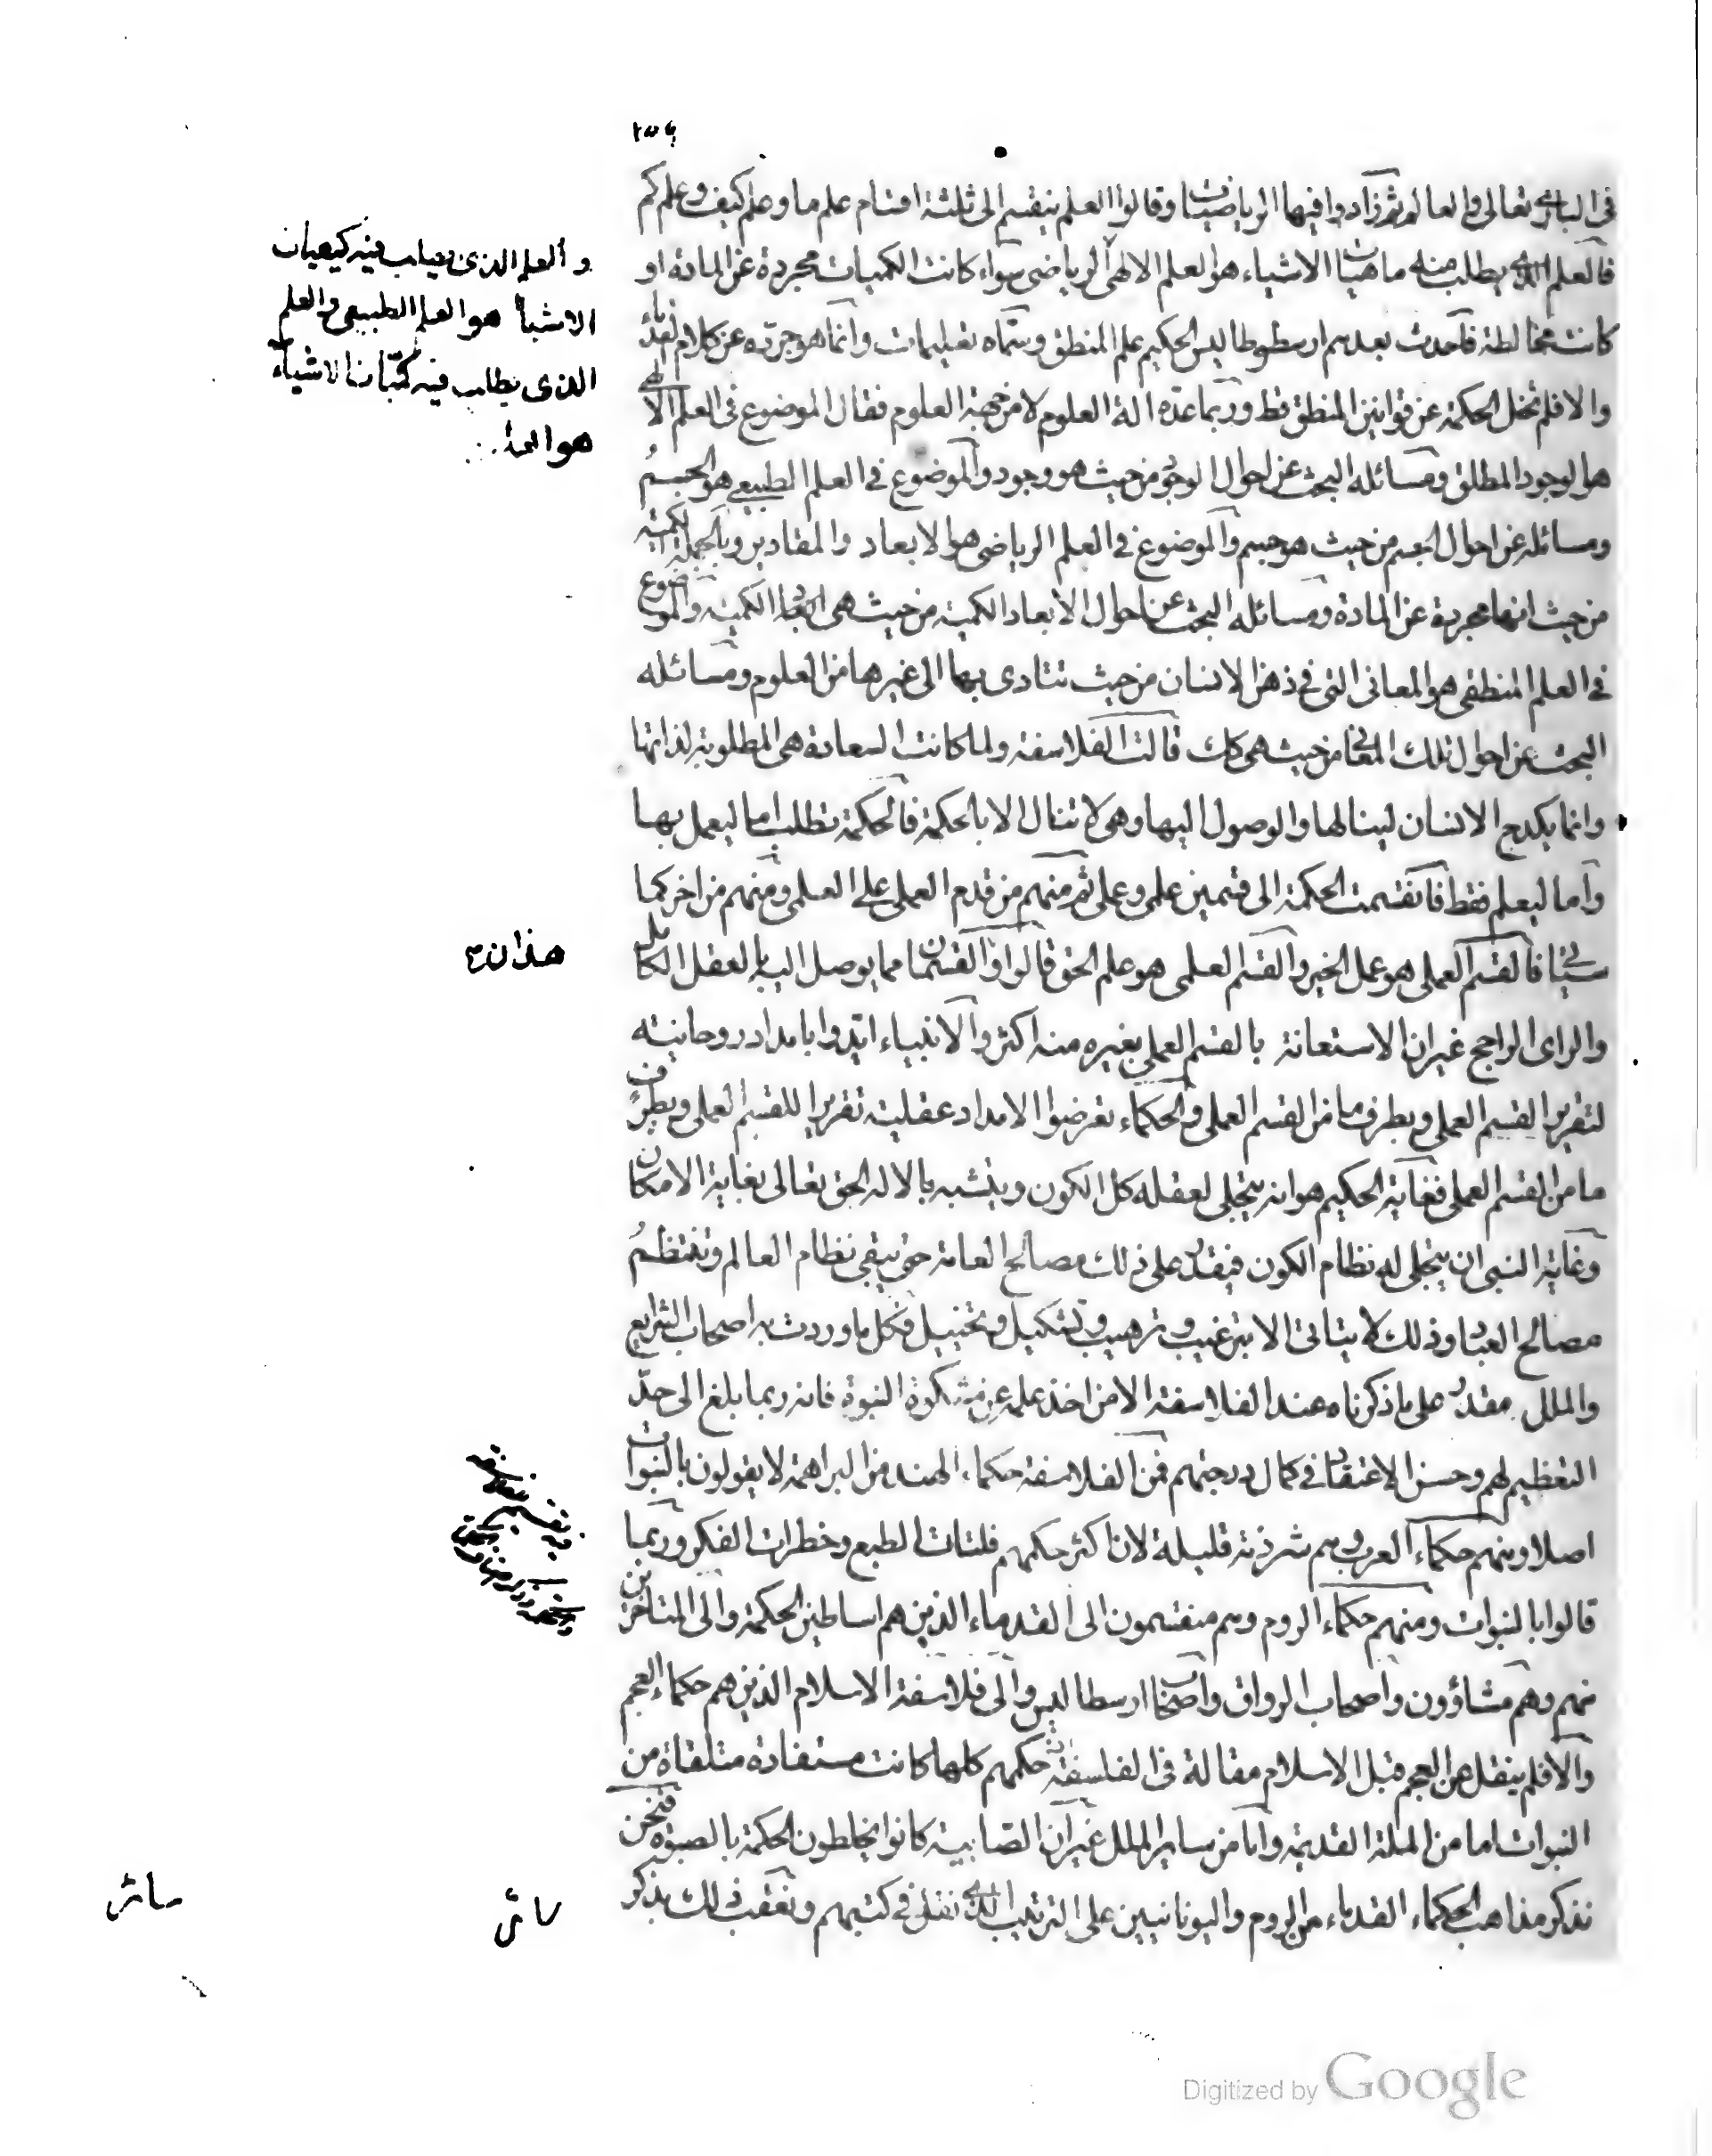 ٢٥٦
في الباري تعالى والعالم ثم زادوا فيها الرياضيات وقالوا العلم ينقسم الى ثلثة اقسام علم ما وعلم كيف وعلم كم
فالعلم الذي يطلب منه ماهيات الاشياء هو العلم الالهى الرياضى سواء كانت الكميات مجردة عن المادة او
كانت مخالطة فاحدث بعدهم ارسطوطاليس الحكيم علم المنطق وسماه تعليمات وانما هو جرده عن كلام القدماء
والا فلم تخل الحكمة عن قوانين المنطق قط وربما عده الة العلوم لا من جهة العلوم فقال الموضوع فى العلم الالهى
هو الوجود المطلق ومسائله البحث عن احوال الوجود من حيث هو وجود والموضوع فى العلم الطبيعي هو الجسم
ومسائله عن احوال الجسم من حيث هو جسم والموضوع فى العلم الرياضى هو الابعاد والمقادير وبالجملة الكمية
من حيث انها مجردة عن المادة ومسائله البحث عن احوال الابعاد الكمية من حيث هى الكمية والموضوع
فى العلم المنطقى هو المعانى التى فى ذهن الانسان من حيث تتادى بها الى غيرها من العلوم ومسائله
البحث عن احوال تلك المعانى من حيث هى كك قالت الفلاسفة ولما كانت السعادة هى المطلوبة لذاتها
وانما يكدح الانسان لينالها والوصول اليها وهى لا تنال الا بالحكمة فالحكمة تطلب اما ليعمل بها
واما ليعلم فقط فانقسمت الحكمة الى قسمين علمى وعملى ثم منهم من قدم العملى على العلمى ومنهم من اخر كما
سيئتى فالقسم العملى هو عمل الخير والقسم العلمى هو علم الحق قالوا والقسمان مما يوصل اليه بالعقل الكامل
والراى الراجح غير ان الاستعانة بالقسم العملى بغيره منه اكثر والانبياء ايدوا بامداد روحانيته
لتقرير القسم العملى وبطرف ما من القسم العملى والحكماء تعرضوا لامداد عقلية تقريرا للقسم العملى وبطرف
ما من القسم العملى فغاية الحكيم هو انه يتجلى لعقله كل الكون ويتشبه بالاله الحق تعالى بغاية الامكان
وغاية النبى ان يتجلى له نظام الكون فيقدر على ذلك مصالح العامة حتى يبقى نظام العالم وتنتظم
مصالح العباد وذلك لا يتاتى الا بترغيب وترهيب وتشكيل وتخييل فكل ما وردت به اصحاب الشرايع
والملل مقدر على ما ذكرناه عند الفلاسفة الا من اخذ علمه عن مشكوة النبوة فانه ربما بلغ الى حد
التعظيم لهم وحسن الاعتقاد فى كمال درجتهم فمن الفلاسفة حكماء الهند من البراهمة لا يقولون بالنبوات
اصلا ومنهم حكماء العرب وهم شرذمة قليلة لان اكثر حكمهم فلتات الطبع وخطرات الفكر وربما
قالوا بالنبوات ومنهم حكماء الروم وهم منقسمون الى القدماء الذين هم اساطين الحكمة والى المتاخرين
منهم وهم مشاؤون واصحاب الرواق واصحاب ارسطاليس والى فلاسفة الاسلام الذين هم حكماء العجم
والا فلم ينقل عن العجم قبل الاسلام مقالة فى الفلسفة حكمهم كلها كانت مستفادة متلقاة من
النبوات اما من الملة القديمة واما من ساير الملل غير ان الصابية كانوا يخلطون الحكمة بالصبوة فنحن
نذكر مذاهب الحكماء القدماء من الروم واليونانيين على الترتيب الذي نقل فى كتبهم ونعقب ذلك بذكر
والعلم الذى يطلب فيه كيفيات
الاشيأ هو العلم الطبيعى والعلم
الذى يطلب فيه كميات الاشياء
هو
سائر
Digitized by Google